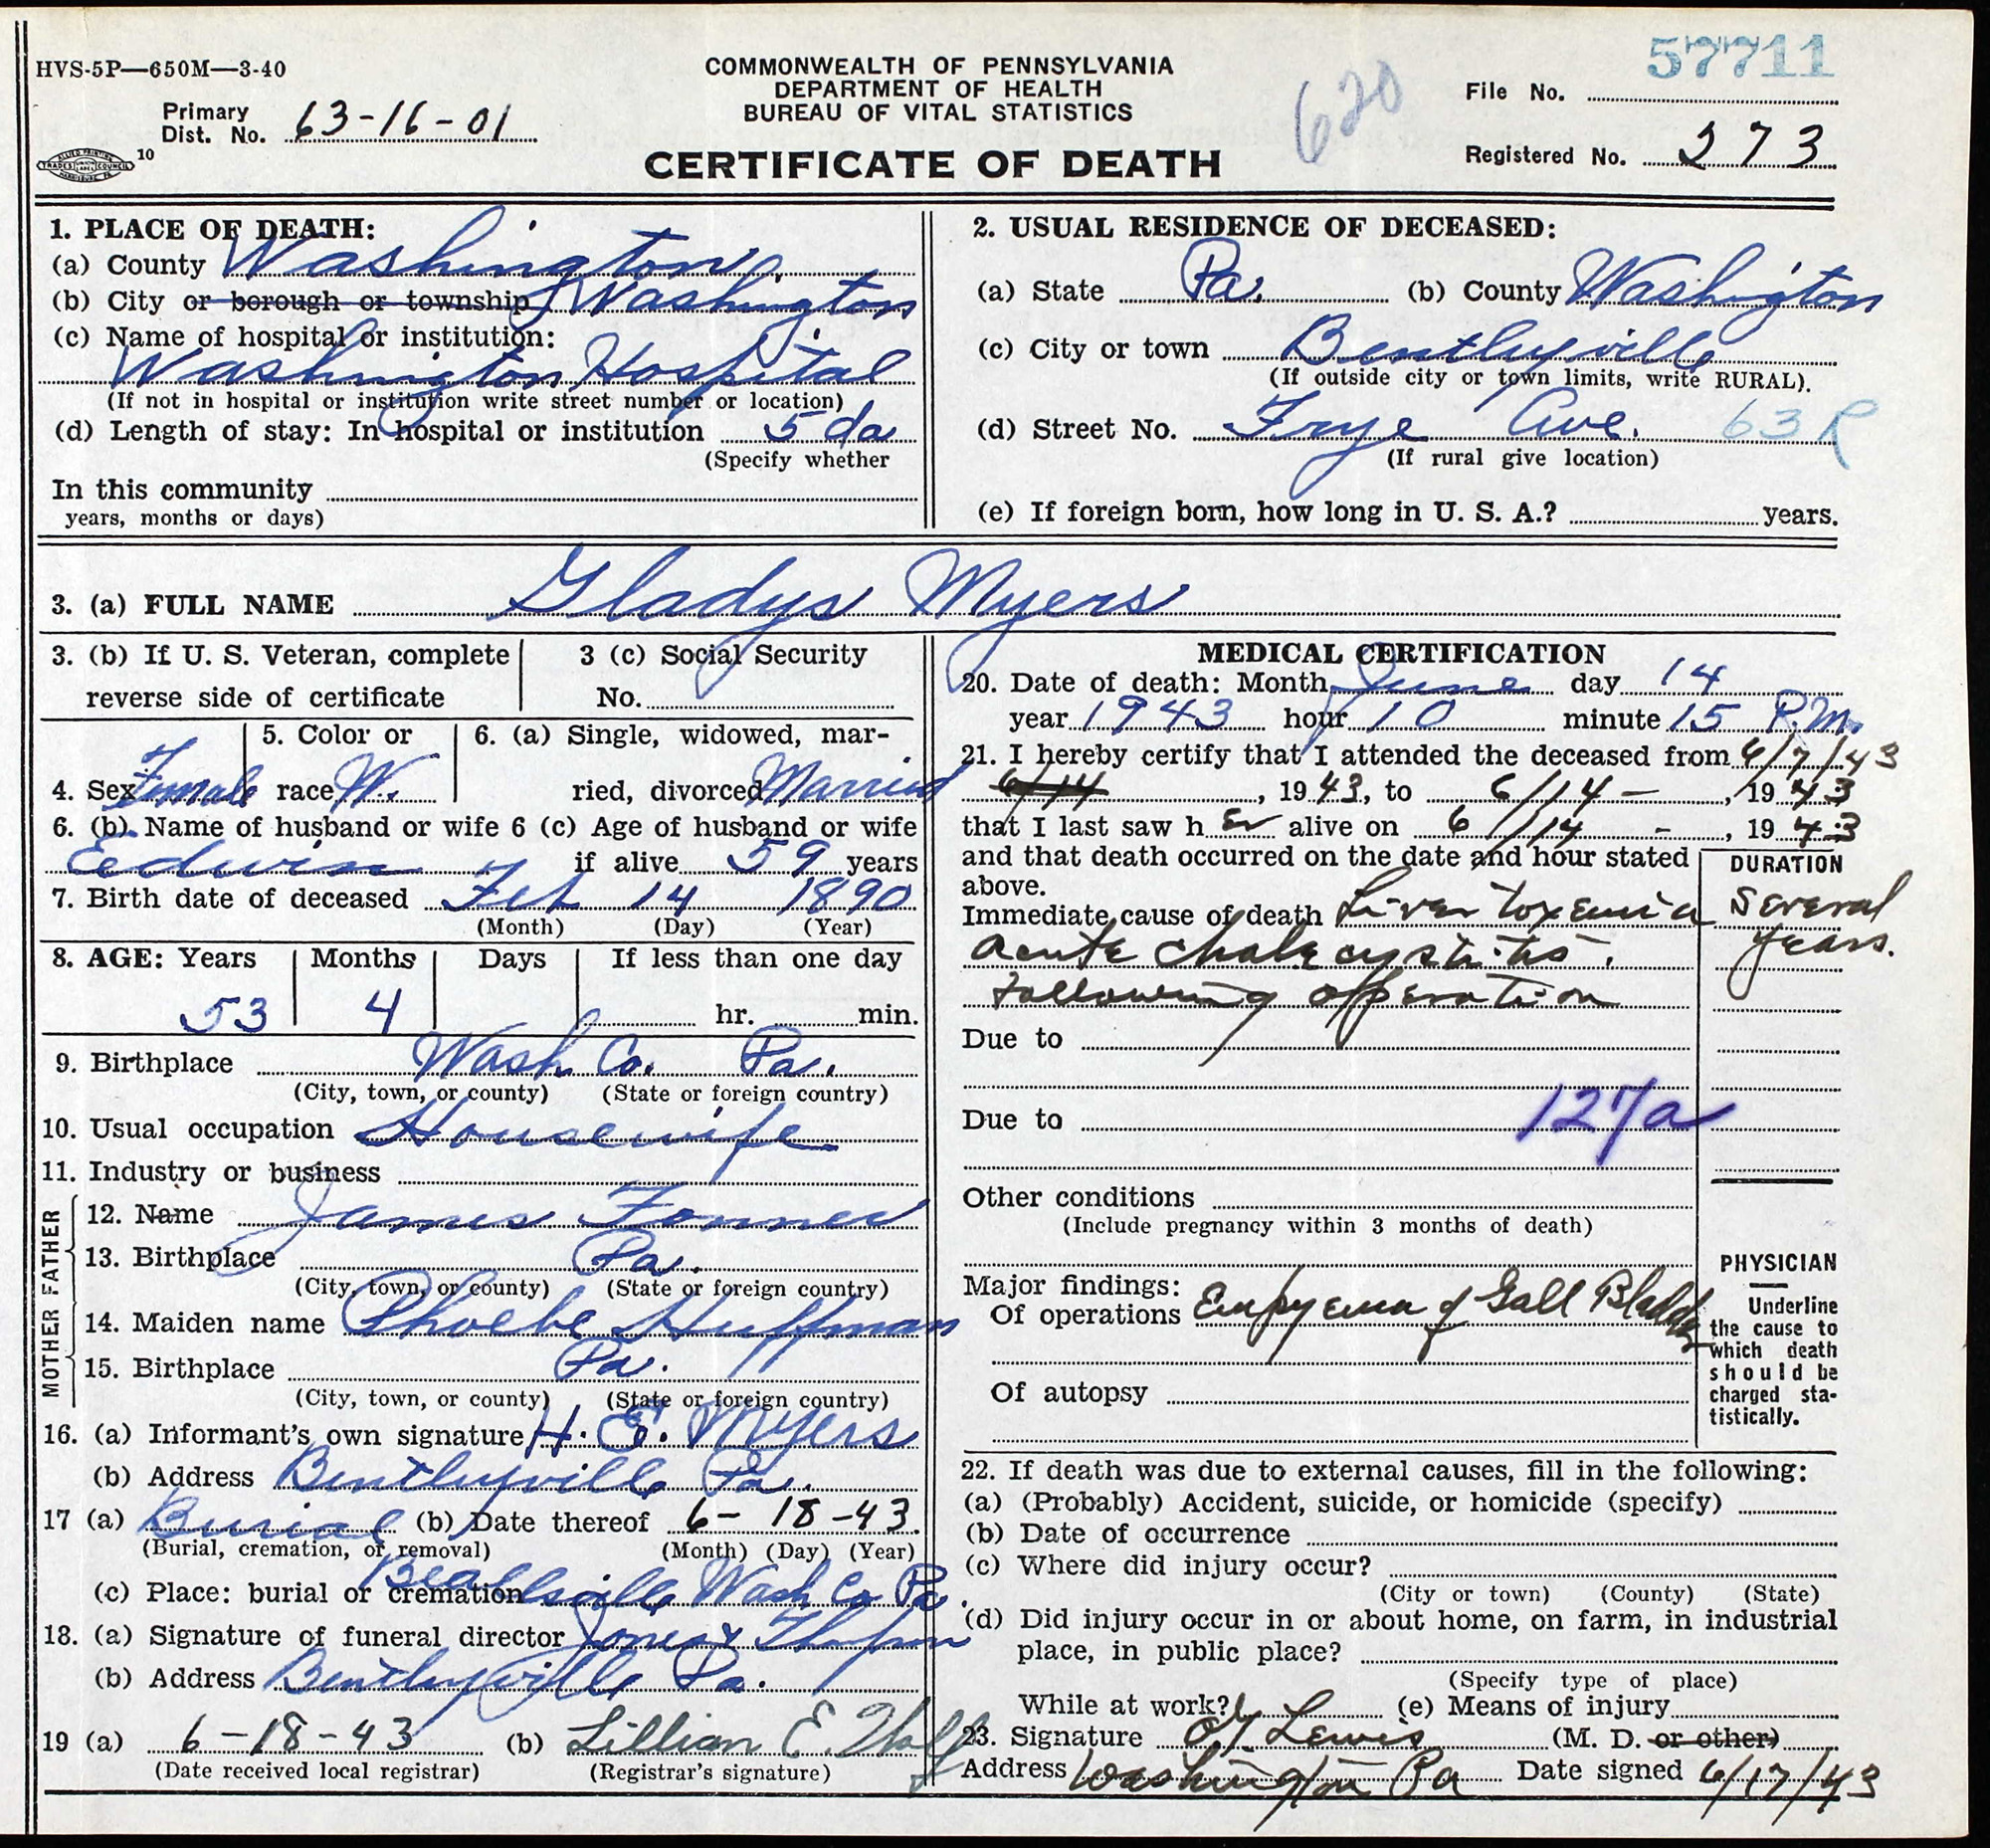 HVS-5P—650M—3-40
COMMONWEALTH OF PENNSYLVANIA
DEPARTMENT OF HEALTH
BUREAU OF VITAL STATISTICS
CERTIFICATE OF DEATH
620
57711
File No.
Primary
Dist. No. 63-16-01
10
Registered No. 273
1. PLACE OF DEATH:
(a) County Washington
(b) City or borough or township Washington
(c) Name of hospital or institution:
Washington Hospital
(If not in hospital or institution write street number or location)
(d) Length of stay: In hospital or institution 5 da
(Specify whether
In this community
years, months or days)
2. USUAL RESIDENCE OF DECEASED:
(a) State Pa. (b) County Washington
(c) City or town Bentleyville
(If outside city or town limits, write RURAL).
(d) Street No. Frye Ave. 63 R
(If rural give location)
(e) If foreign born, how long in U. S. A.? years.
3. (a) FULL NAME Gladys Myers
3. (b) If U. S. Veteran, complete
reverse side of certificate
3 (c) Social Security
No.
4. Sex Female
5. Color or
race W.
6. (a) Single, widowed, mar-
ried, divorced Married
6. (b) Name of husband or wife 6 (c) Age of husband or wife
Edwin if alive 59 years
7. Birth date of deceased Feb 14 1890
(Month) (Day) (Year)
8. AGE: Years Months Days If less than one day
53 4 hr. min.
9. Birthplace Wash Co. Pa.
(City, town, or county) (State or foreign country)
10. Usual occupation Housewife
11. Industry or business
FATHER
12. Name James Fonner
13. Birthplace Pa.
(City, town, or county) (State or foreign country)
MOTHER
14. Maiden name Phoebe Huffman
15. Birthplace Pa.
(City, town, or county) (State or foreign country)
16. (a) Informant's own signature H. E. Myers
(b) Address Bentleyville Pa.
17 (a) Burial (b) Date thereof 6-18-43
(Burial, cremation, or removal) (Month) (Day) (Year)
(c) Place: burial or cremation Beallsville Wash Co Pa.
18. (a) Signature of funeral director Jones & Thompson
(b) Address Bentleyville Pa.
19 (a) 6-18-43 (b) Lillian E.
(Date received local registrar) (Registrar's signature)
MEDICAL CERTIFICATION
20. Date of death: Month June day 14
year 1943 hour 10 minute 15 P.M.
21. I hereby certify that I attended the deceased from 6/7/43
6/14, 1943, to 6/14 -, 1943
that I last saw her alive on 6/14 -, 1943
and that death occurred on the date and hour stated
above.
DURATION
Immediate cause of death Liver toxemia Several
acute cholecystitis. years.
following operation
Due to
Due to 127a
Other conditions
(Include pregnancy within 3 months of death)
Major findings:
Of operations Empyema of Gall Bladder
Of autopsy
PHYSICIAN
Underline
the cause to
which death
should be
charged sta-
tistically.
22. If death was due to external causes, fill in the following:
(a) (Probably) Accident, suicide, or homicide (specify)
(b) Date of occurrence
(c) Where did injury occur?
(City or town) (County) (State)
(d) Did injury occur in or about home, on farm, in industrial
place, in public place?
(Specify type of place)
While at work? (e) Means of injury
23. Signature Lewis (M. D. or other)
Address Washington Pa Date signed 6/17/43